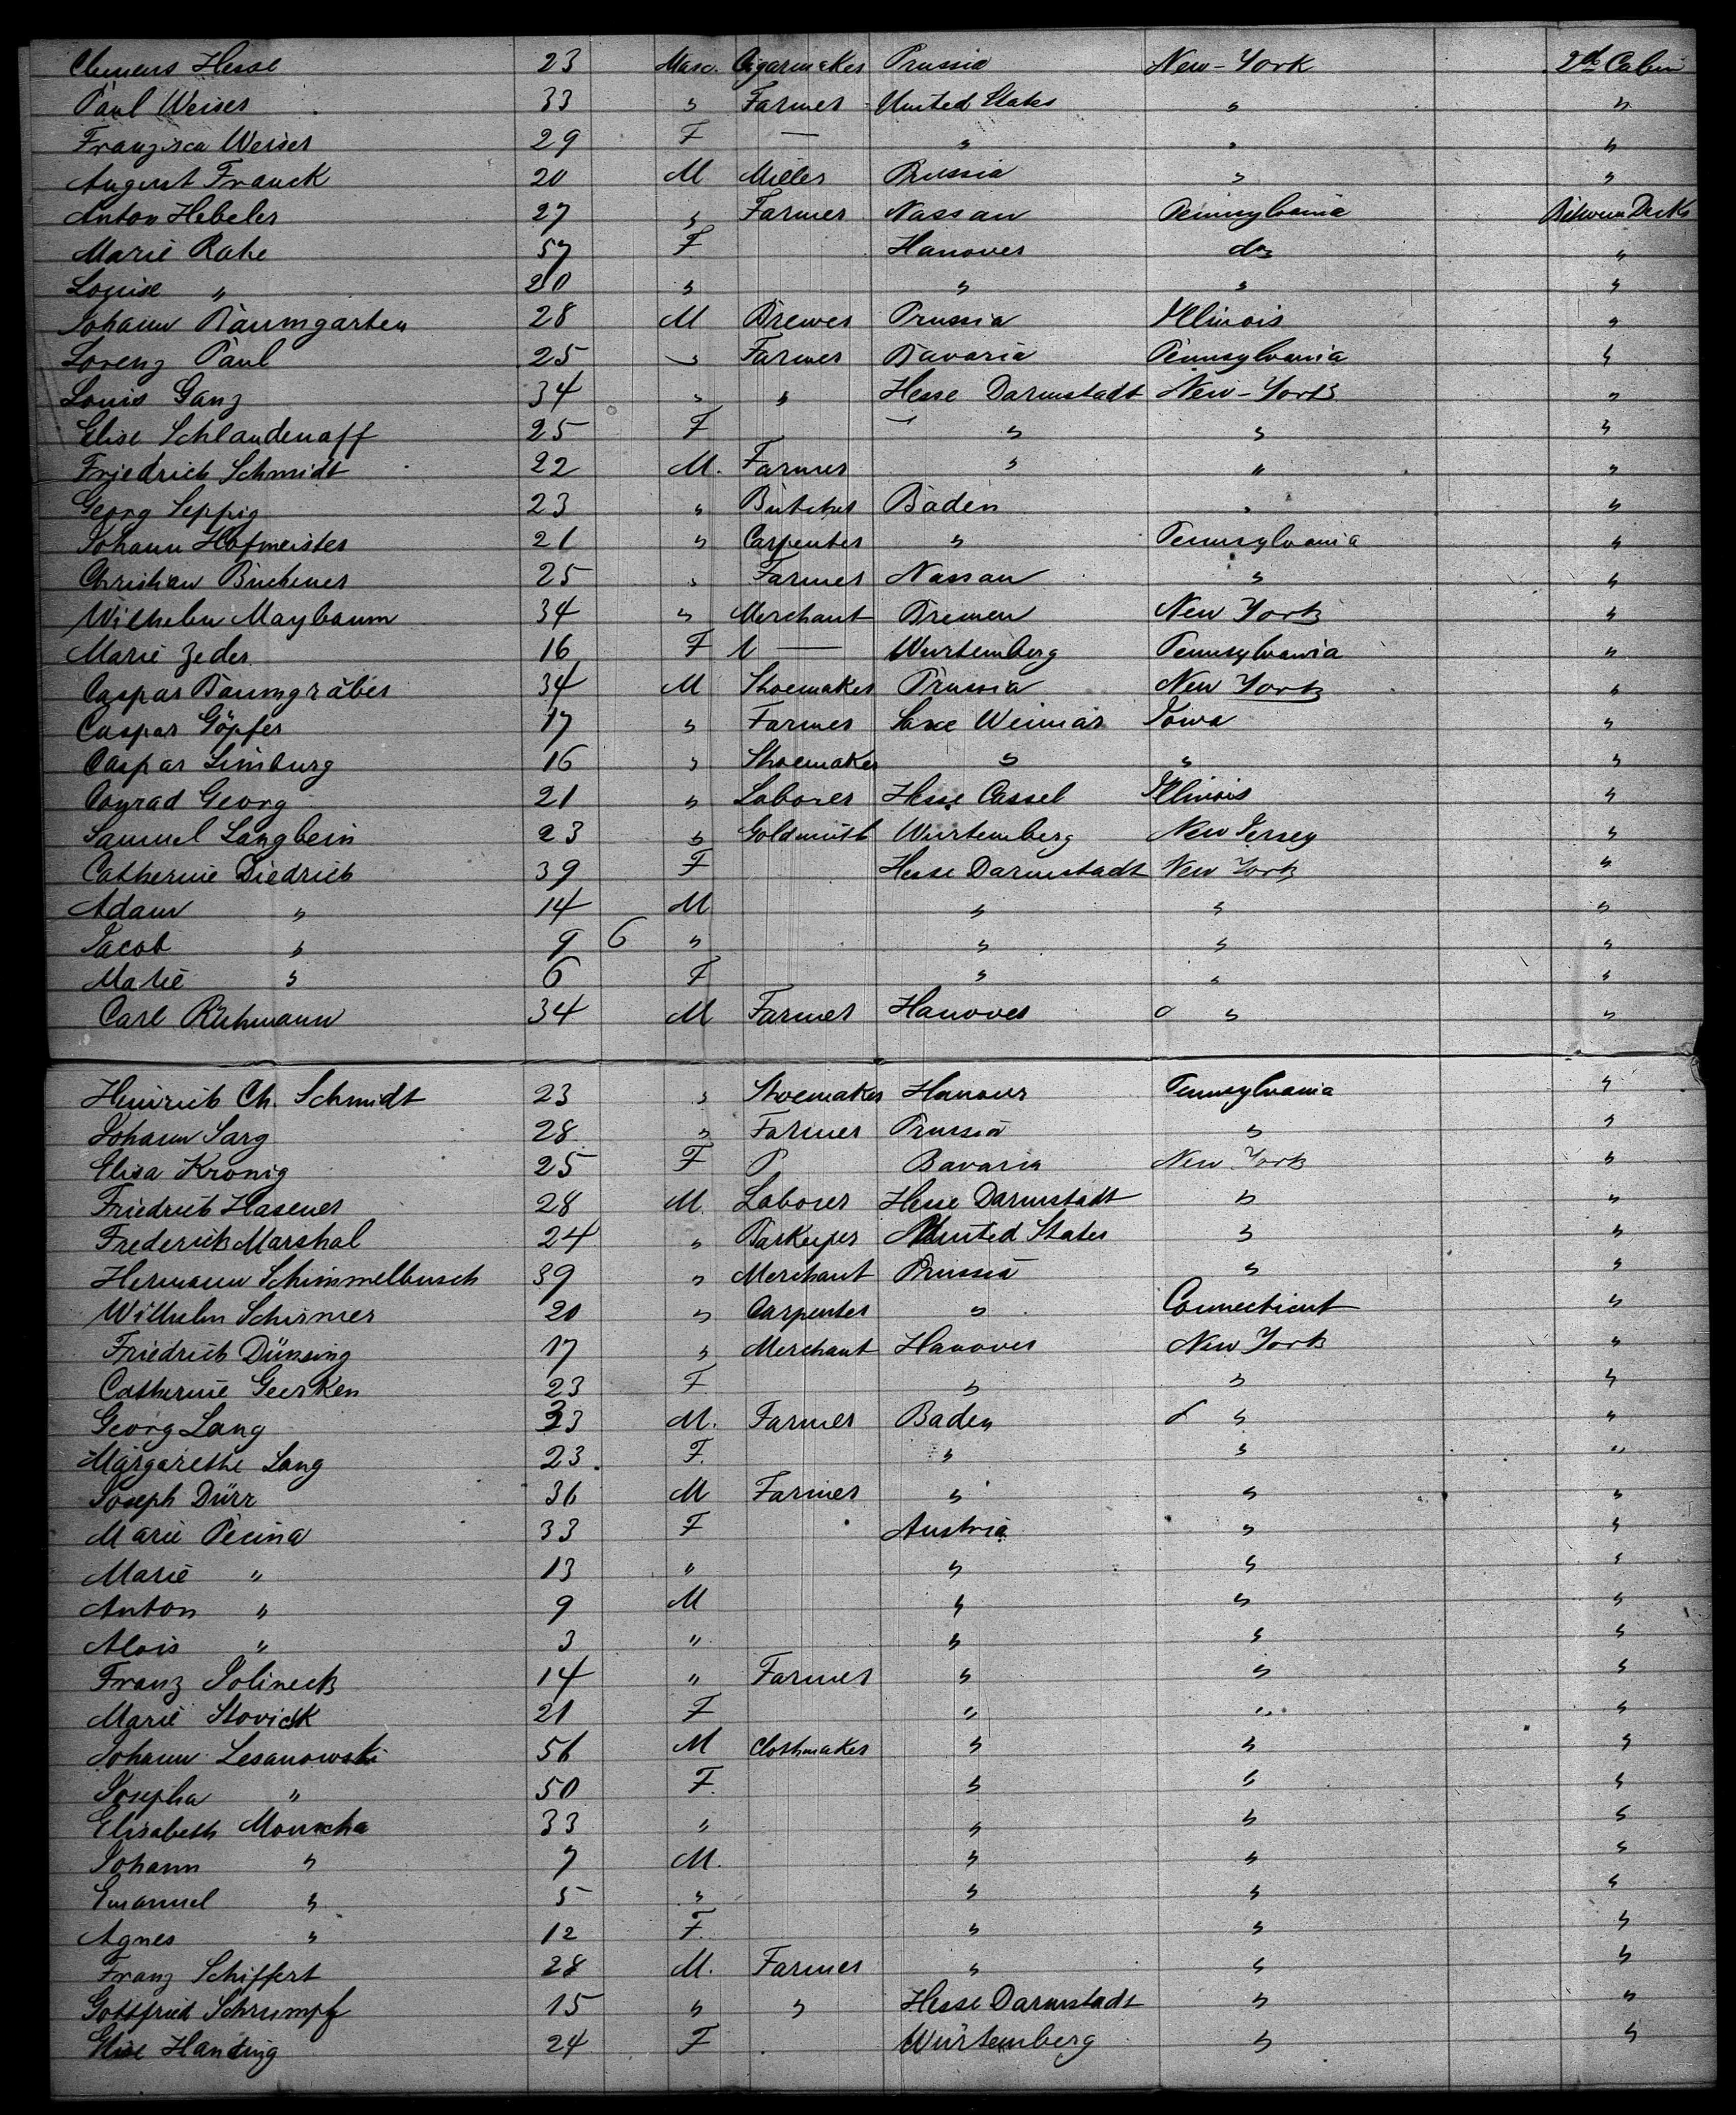 Clemens Hesse 23 Masc. Cigarmaker Prussia New-York 2d Cabin
Paul Weiser 33 " Farmer United States " "
Franzisca Weiser 29 F — " " "
August Franck 20 M Miller Prussia " "
Anton Hebeler 27 " Farmer Nassau Pennsylvania Between Decks
Marie Rahe 57 F Hanover do "
Louise " 20 " " " "
Johann Baumgarten 28 M Brewer Prussia Illinois "
Lorenz Paul 25 " Farmer Bavaria Pennsylvania "
Louis Ganz 34 " " Hesse Darmstadt New-York "
Elise Schlaudenaff 25 F — " " "
Friedrich Schmidt 22 M. Farmer " " "
Georg Seppig 23 " Butcher Baden " "
Johann Hofmeister 21 " Carpenter " Pennsylvania "
Christian Buchener 25 " Farmer Nassau " "
Wilhelm Maybaum 34 " Merchant Bremen New York "
Marie Zeder 16 F — Wurtemberg Pennsylvania "
Caspar Baumgräber 34 M Shoemaker Prussia New York "
Caspar Göpfer 17 " Farmer Saxe Weimar Iowa "
Caspar Limburg 16 " Shoemaker " " "
Conrad Georg 21 " Laborer Hesse Cassel Illinois "
Samuel Langbein 23 " Goldsmith Wurtemberg New Jersey "
Catherine Diedrich 39 F Hesse Darmstadt New York "
Adam " 14 M " " "
Jacob " 9 6 " " " "
Marie " 6 F " " "
Carl Rühmann 34 M Farmer Hanover " "
Heinrich Ch. Schmidt 23 " Shoemaker Hanover Pennsylvania "
Johann Sarg 28 " Farmer Prussia " "
Elisa Kronig 25 F Bavaria New York "
Friedrich Hasener 28 M. Laborer Hesse Darmstadt " "
Frederick Marshal 24 " Barkeeper United States " "
Hermann Schimmelbusch 39 " Merchant Prussia " "
Wilhelm Schirmer 20 " Carpenter " Connecticut "
Friedrich Dünsing 17 " Merchant Hanover New York "
Catherine Geerken 23 F " " "
Georg Lang 33 M. Farmer Baden " "
Margarethe Lang 23. F. " " "
Joseph Dürr 36 M Farmer " " "
Marie Pecina 33 F Austria " "
Marie " 13 " " " "
Anton " 9 M " " "
Alois " 3 " " " "
Franz Jolineck 14 " Farmer " " "
Marie Stovick 21 F " " "
Johann Lesanowski 56 M Clothmaker " " "
Josepha " 50 F. " " "
Elisabeth Moucha 33 " " " "
Johann " 7 M. " " "
Emanuel " 5 " " " "
Agnes " 12 F. " " "
Franz Schiffert 28 M. Farmer " " "
Gottfried Schrumpf 15 " " Hesse Darmstadt " "
Elise Handing 24 F Würtemberg " "